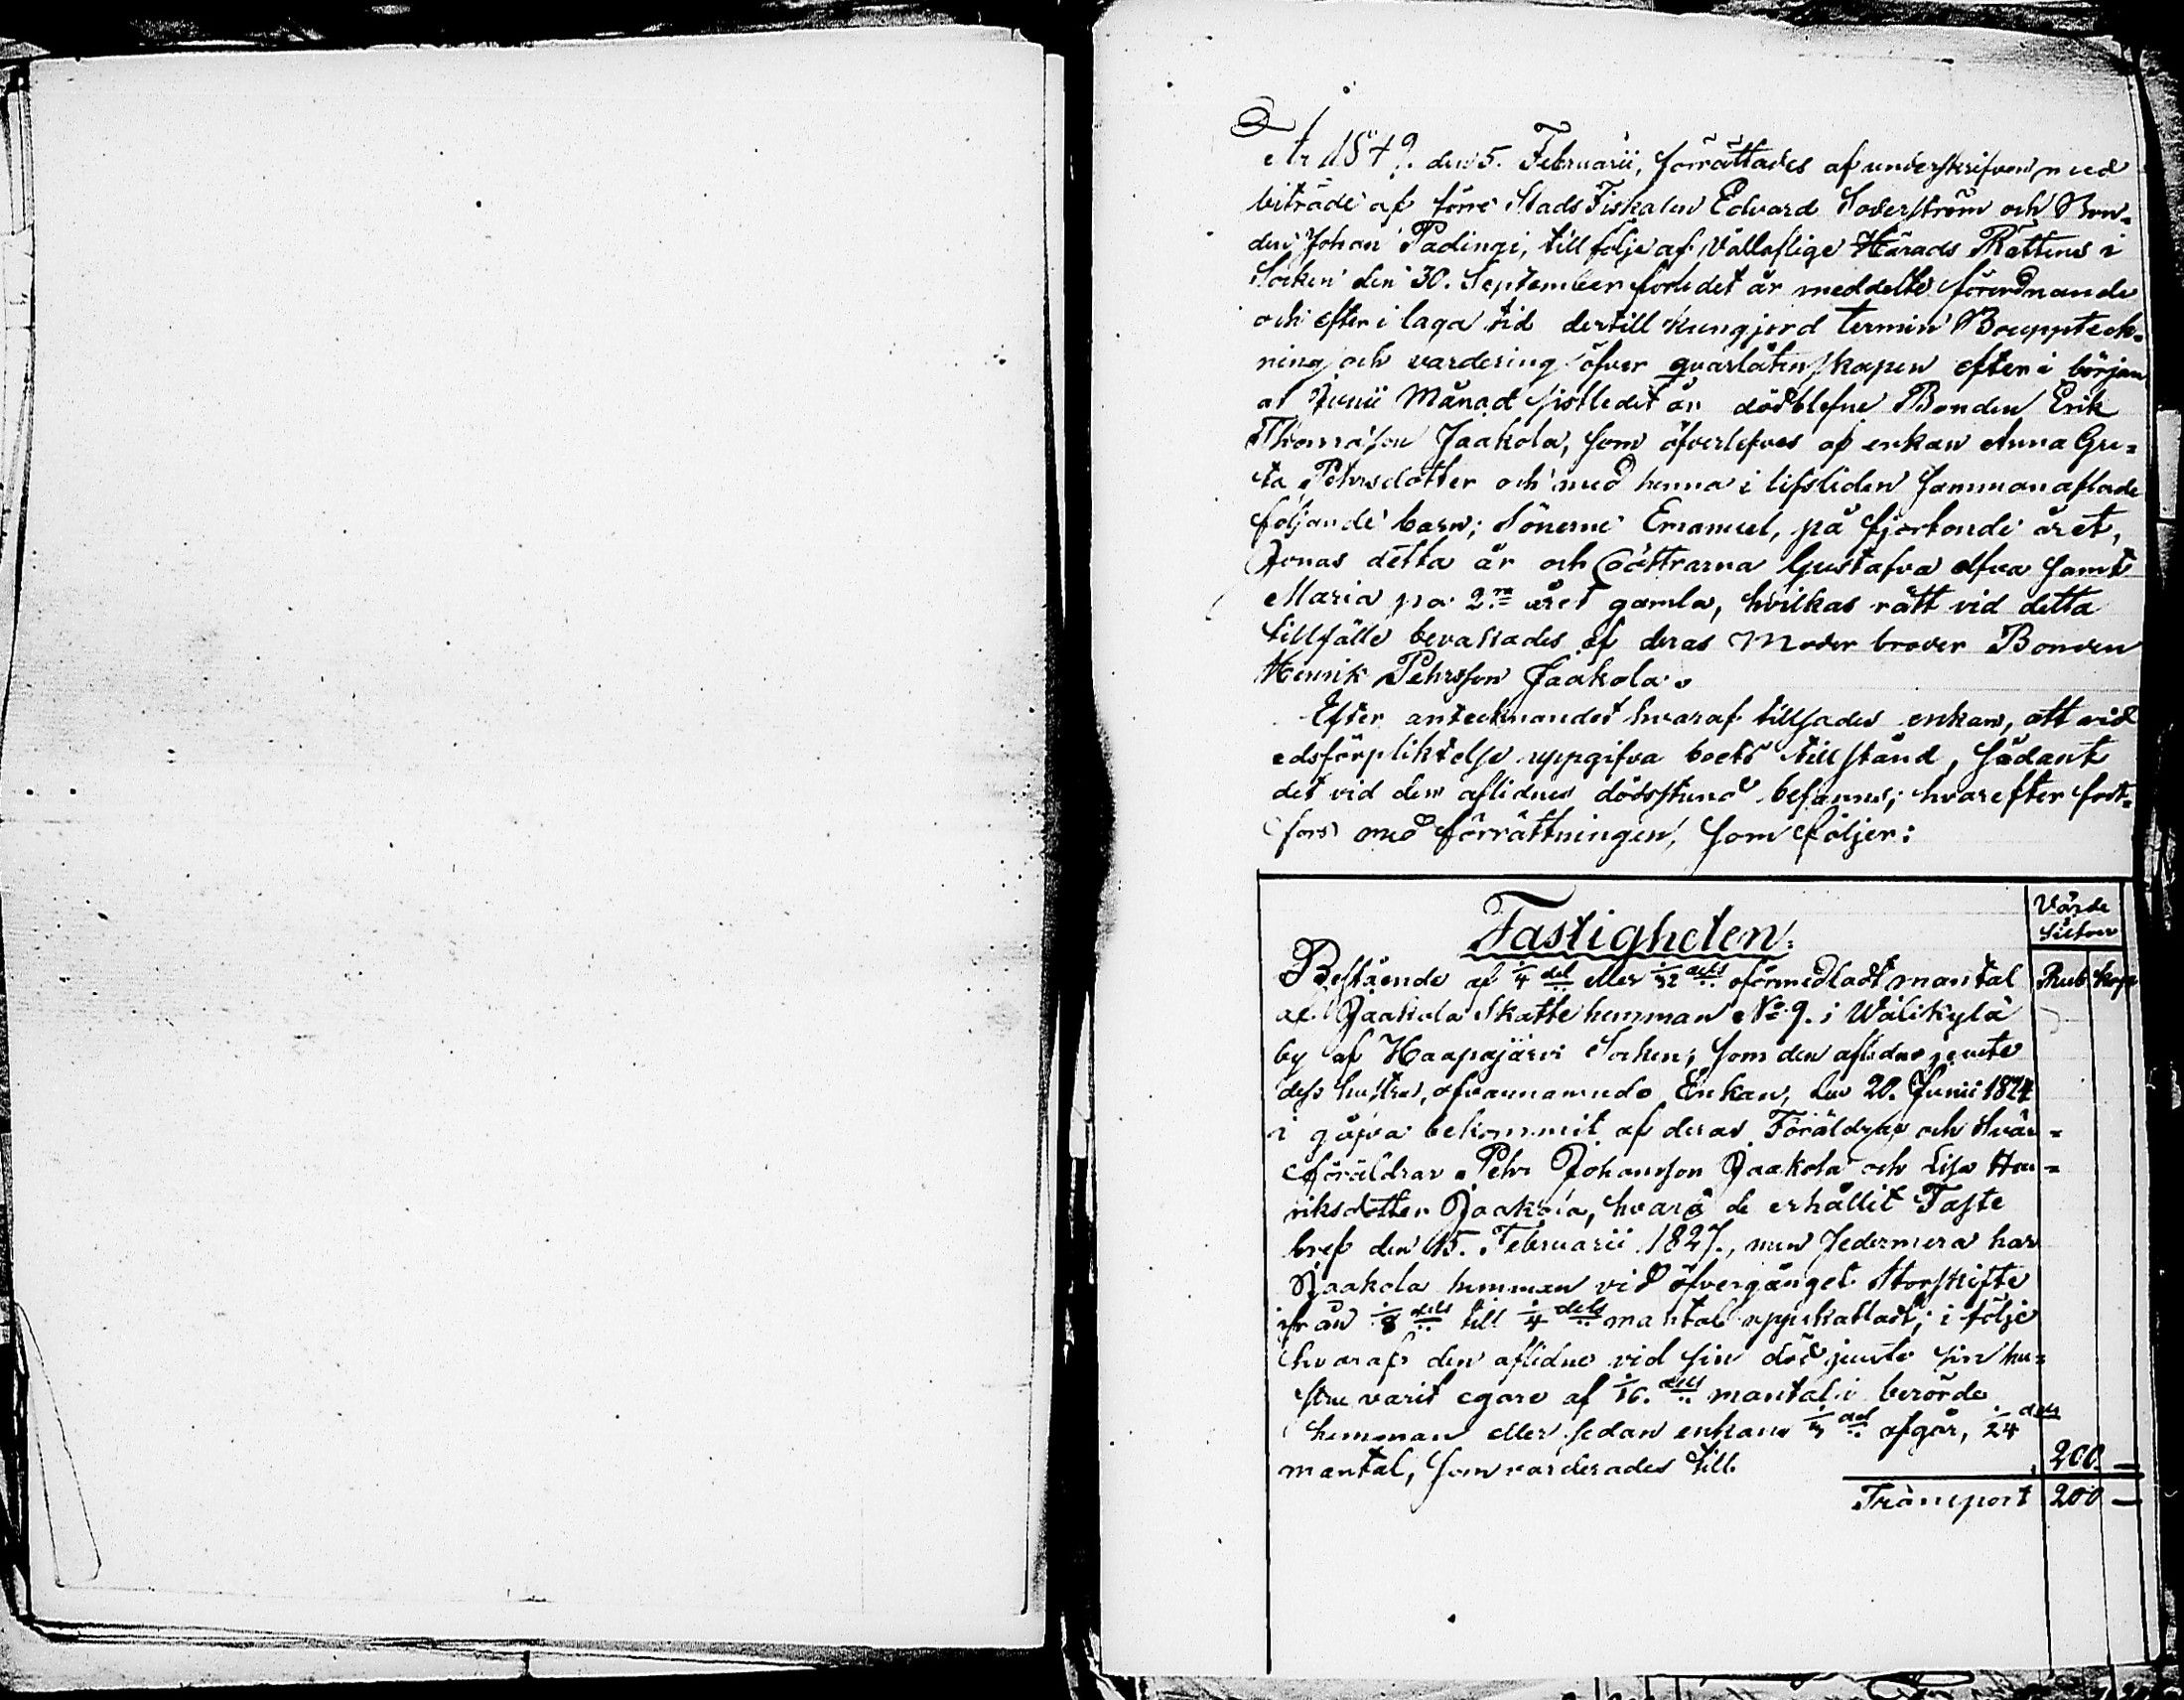 År 1849. den 5. Februarii, förrättades af underskrifven med
biträde af förre Stads Fiskalen Edvard Söderström och Bon-
den Johan Padingi, till följe af Vällaflige Härads Rättens i
Socken den 30. September förledet år meddelte förordnande
och efter i laga tid dertill kungjord termin Bouppteck-
ning och vardering öfver qvarlåtenskapen efter i början
af Junii Månad sistledet år dödblefne Bonden Erik
Thomasson Jaakola, som öfverlefves af enkan Anna Gre-
ta Pehrsdotter och med henna i lifstiden sammanaflade
följande barn; Sönerne Emanuel, på fjortonde året,
Jonas åtta år och Döttrarna Gustafva elfva samt
Maria på 2ra året gamla, hvilkas rätt vid detta
tillfälle bevakades af deras Moder broder Bonden
Henrik Pehrsson Jaakola.
Efter antecknandet hvaraf tillsades enkan, att vid
edsförpliktelse uppgifva boets tillstånd, sådant
det vid den aflidnes dödsstund befanns; hvarefter fort-
fors med förrättningen, som följer:
Värde
Silfver
Fastigheten:
Bestående af 1/4 del eller 1/32 dels oförmedladt mantal Rub Kop
af Jaakola Skatte hemman No 9. i Wälikylä
by af Haapajärvi Socken, som den aflidne jemte
dess hustru, ofvannämnde Enkan, den 20. Junii 1824
i gåfva bekommit af deras Föräldrar och Svär-
föräldrar Pehr Johansson Jaakola och Lisa Hen-
riksdotter Jaakola, hvarå de erhållit Faste
bref den 15. Februarii 1827., men sedermera har
Jaakola hemman vid öfvergånget Storskifte
ifrån 1/8 dels till 1/4 dels mantal uppskattadt; i följe
hvaraf den aflidne vid sin död jemte sin hu-
stru varit egare af 1/16. dels mantal i berörde
hemman eller sedan enkans 1/3 del afgår, 1/24 dels
mantal, som varderades till 200 —
Transport 200 —